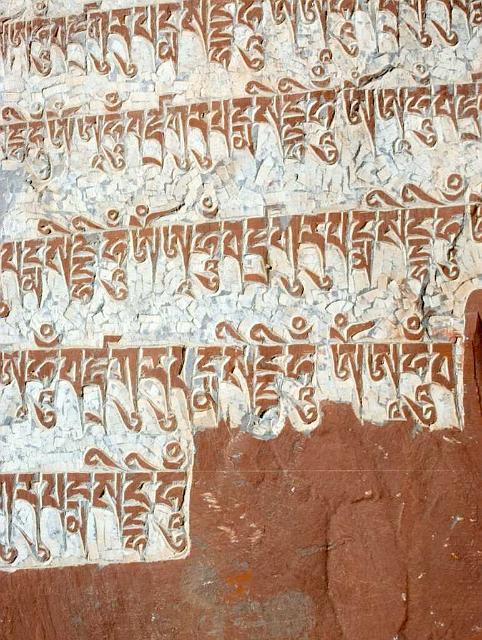 ཧཱུྃ་བཛྲ་གུ་རུ་པདྨ་སིདྡྷི་ཧཱུྃ་ཨོཾ་ཨཱཿ་ཧཱུྃ་བཛྲ
སིདྡྷི་ཧཱུྃ་ཨོཾ་ཨཱཿ་ཧཱུྃ་བཛྲ་གུ་རུ་པདྨ་སིདྡྷི་ཧཱུྃ་ཨོཾ་ཨཱཿ་ཧཱུྃ་བཛྲ
པདྨ་སིདྡྷི་ཧཱུྃ་ཨོཾ་ཨཱཿ་ཧཱུྃ་བཛྲ་གུ་རུ་པདྨ་སིདྡྷི་ཧཱུྃ
ཨཱཿ་ཧཱུྃ་བཛྲ་གུ་རུ་པདྨ་སིདྡྷི་ཧཱུྃ་ཨོཾ་ཨཱཿ་ཧཱུྃ་བ
གུ་རུ་པདྨ་སིདྡྷི་ཧཱུྃ